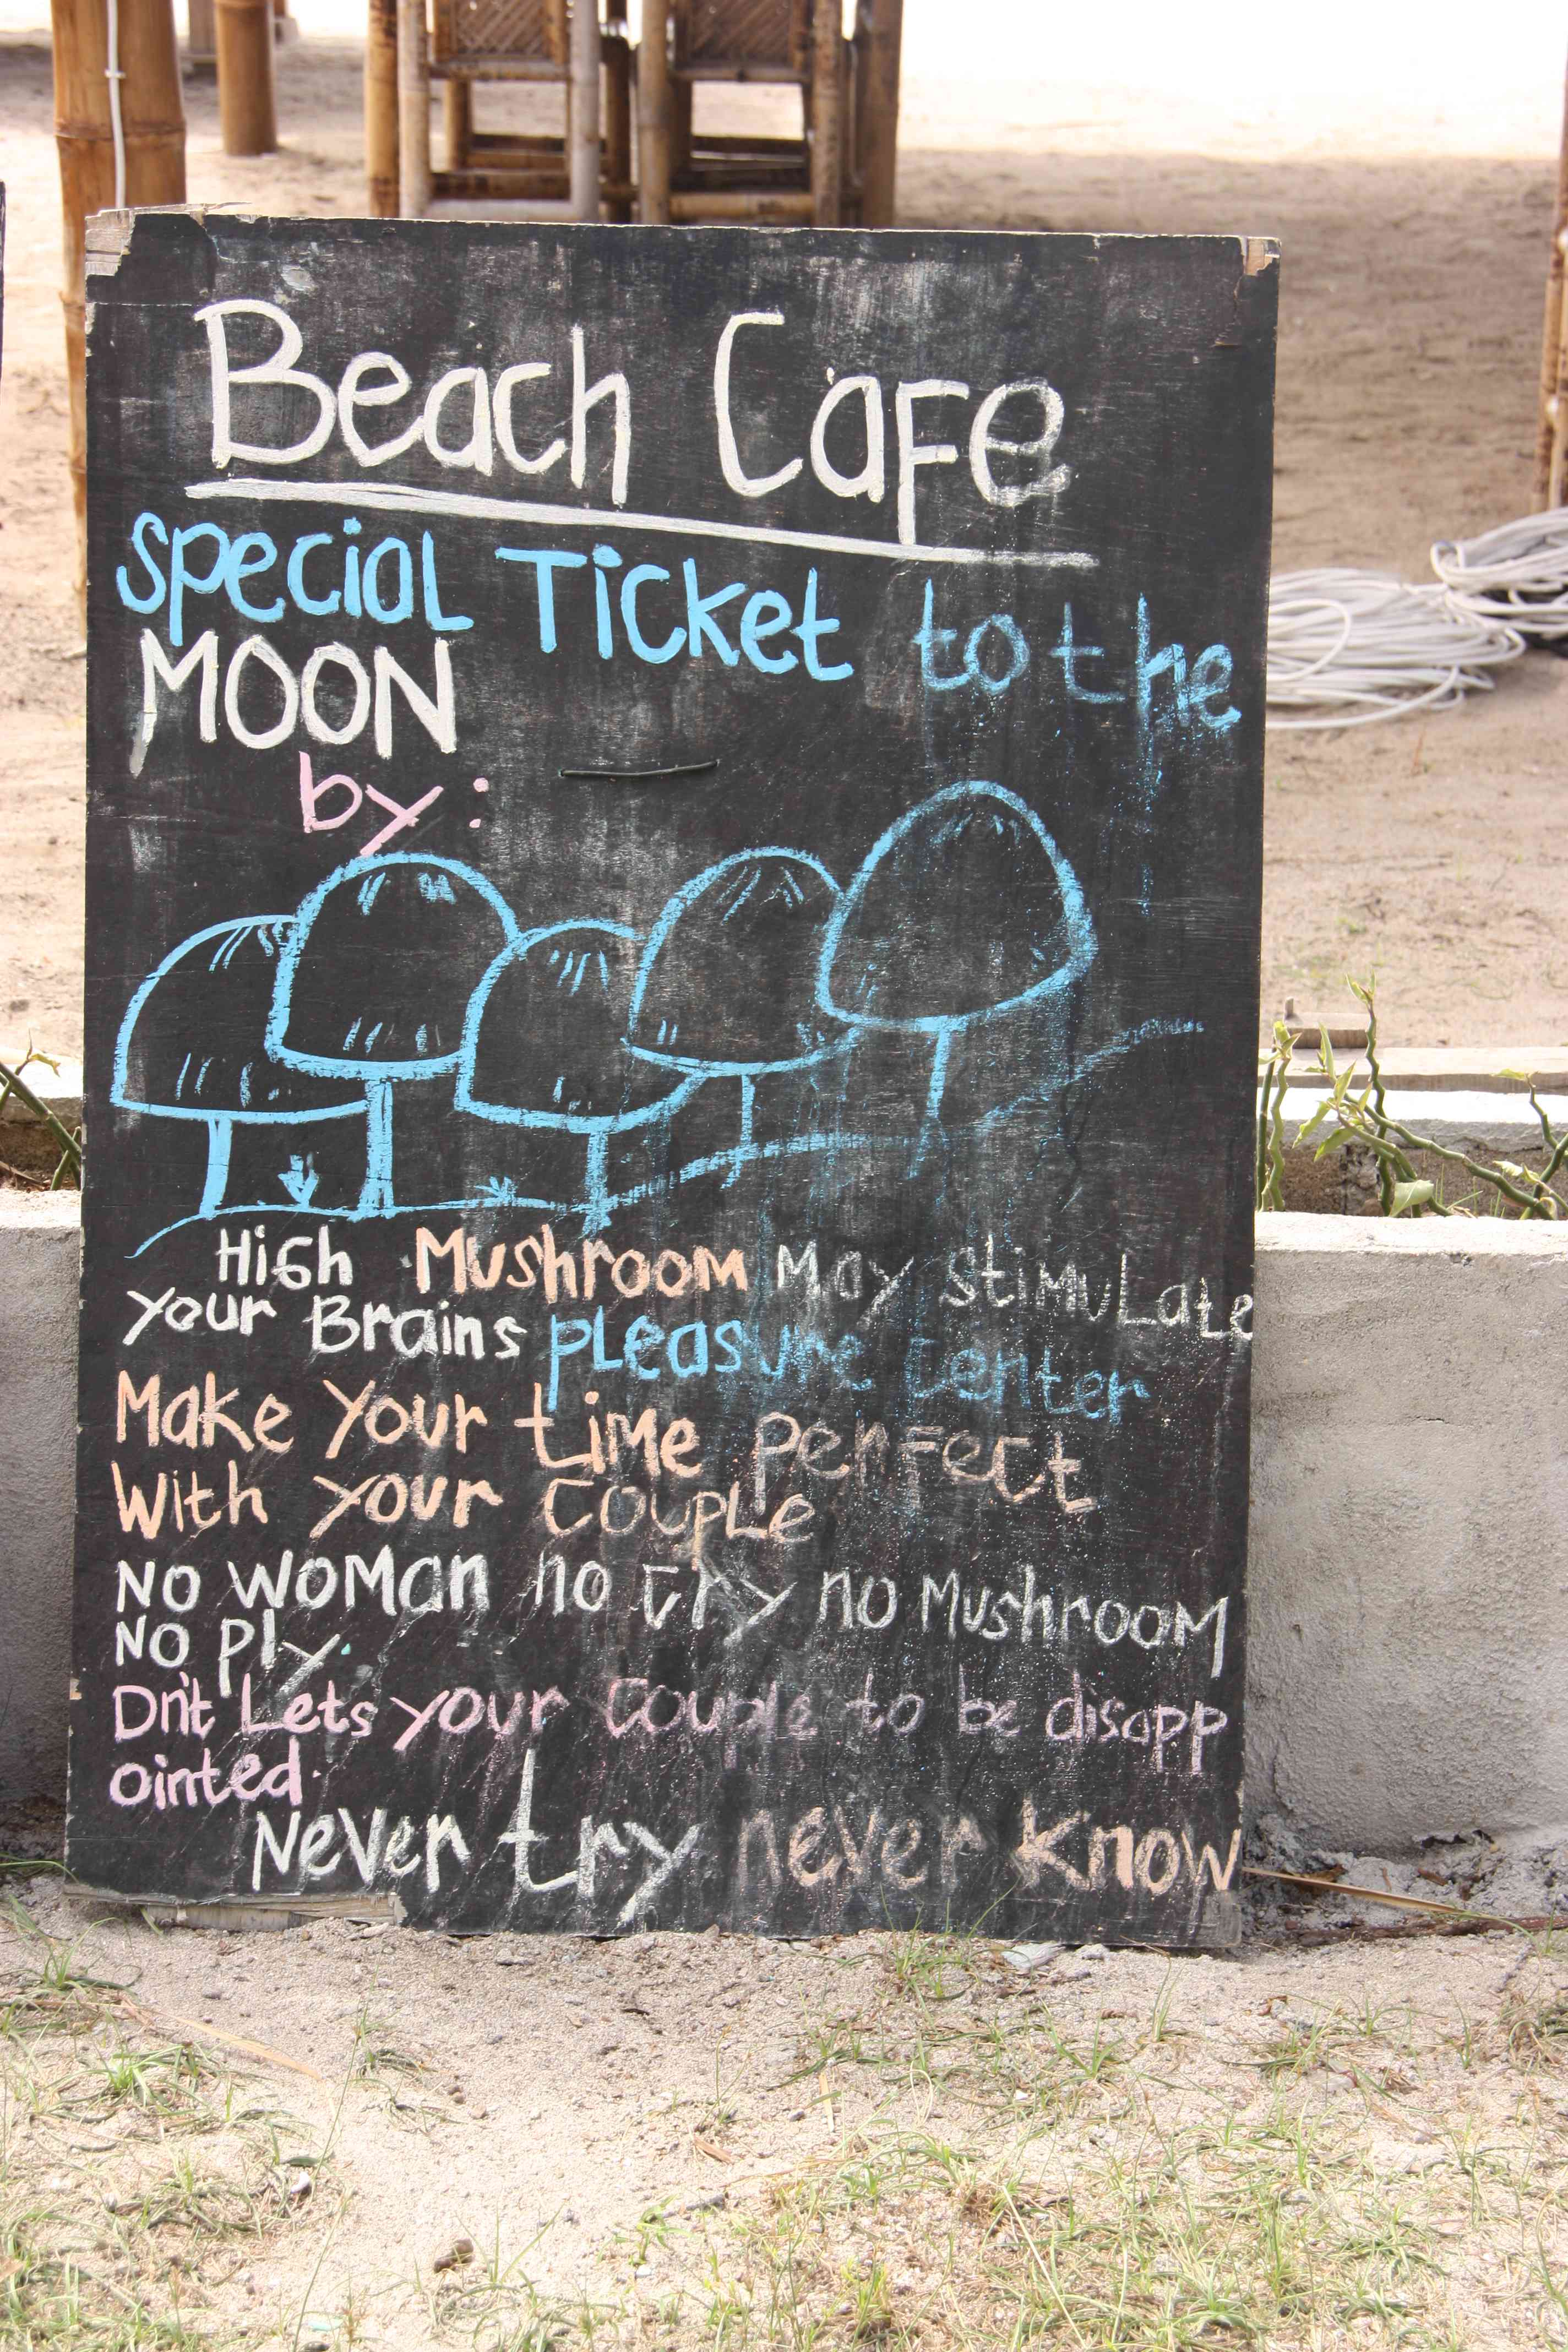 Beach Cafe
Special Ticket to the
MOON
by:
High Mushroom May stimulate
your Brains pleasure center
Make your time perfect
With your couple
No woman no cry no Mushroom
No ply.
Dn't Lets your couple to be disapp
ointed.
Never try never know